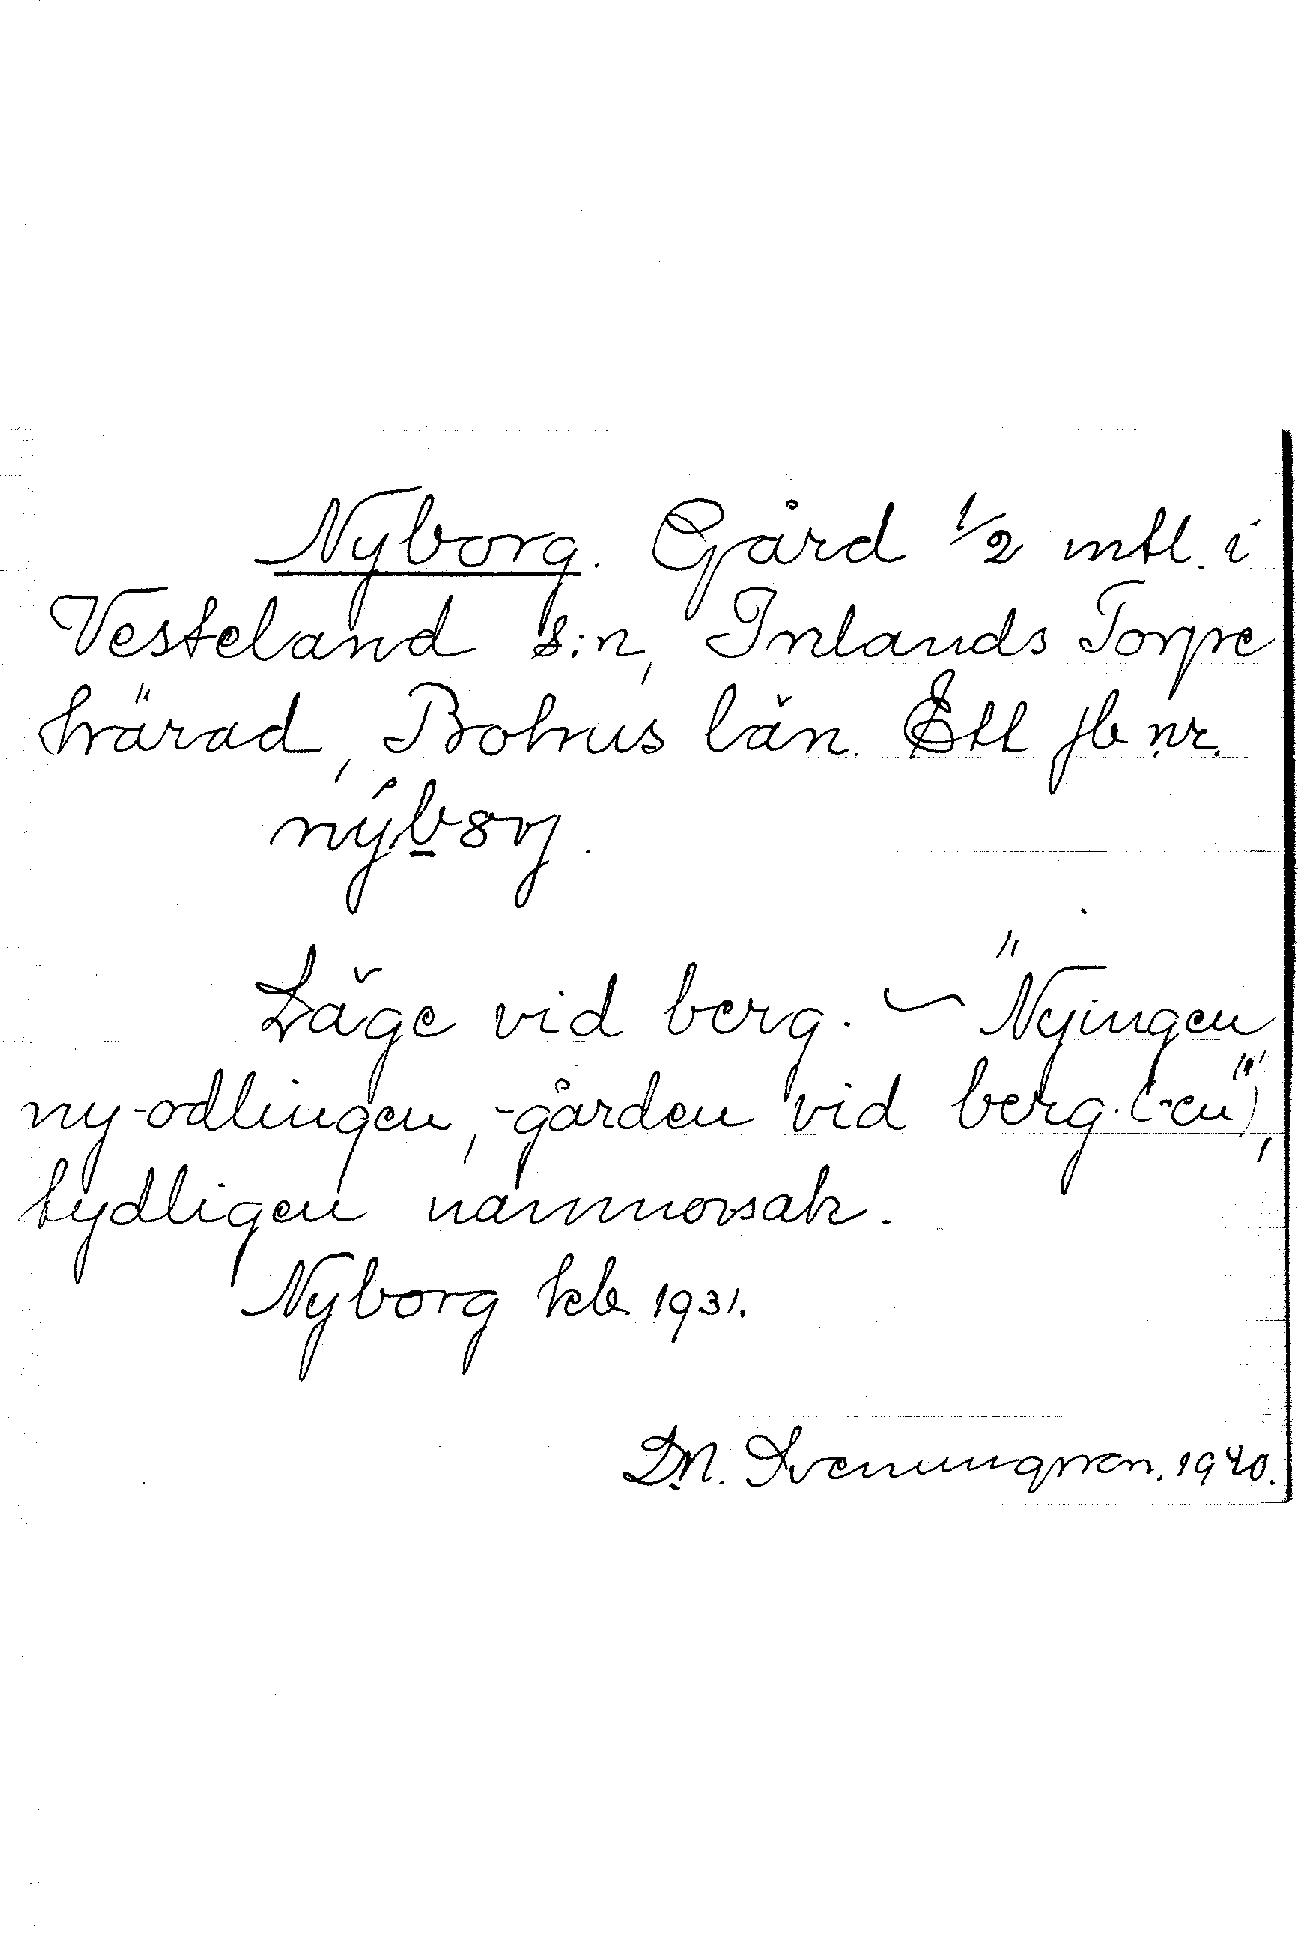 Nyborg. Gård 1/2 mtl. i
Vesteland s:n, Inlands Torpe
härad, Bohus län. Ett jb nr.
nýb8rj.
Läge vid berg. ~ "Nyingen
ny-odlingen, -gården vid berg. (-en"),
tydligen namnorsak.
Nyborg kb 1931.
D.N. Svenungsson. 1940.